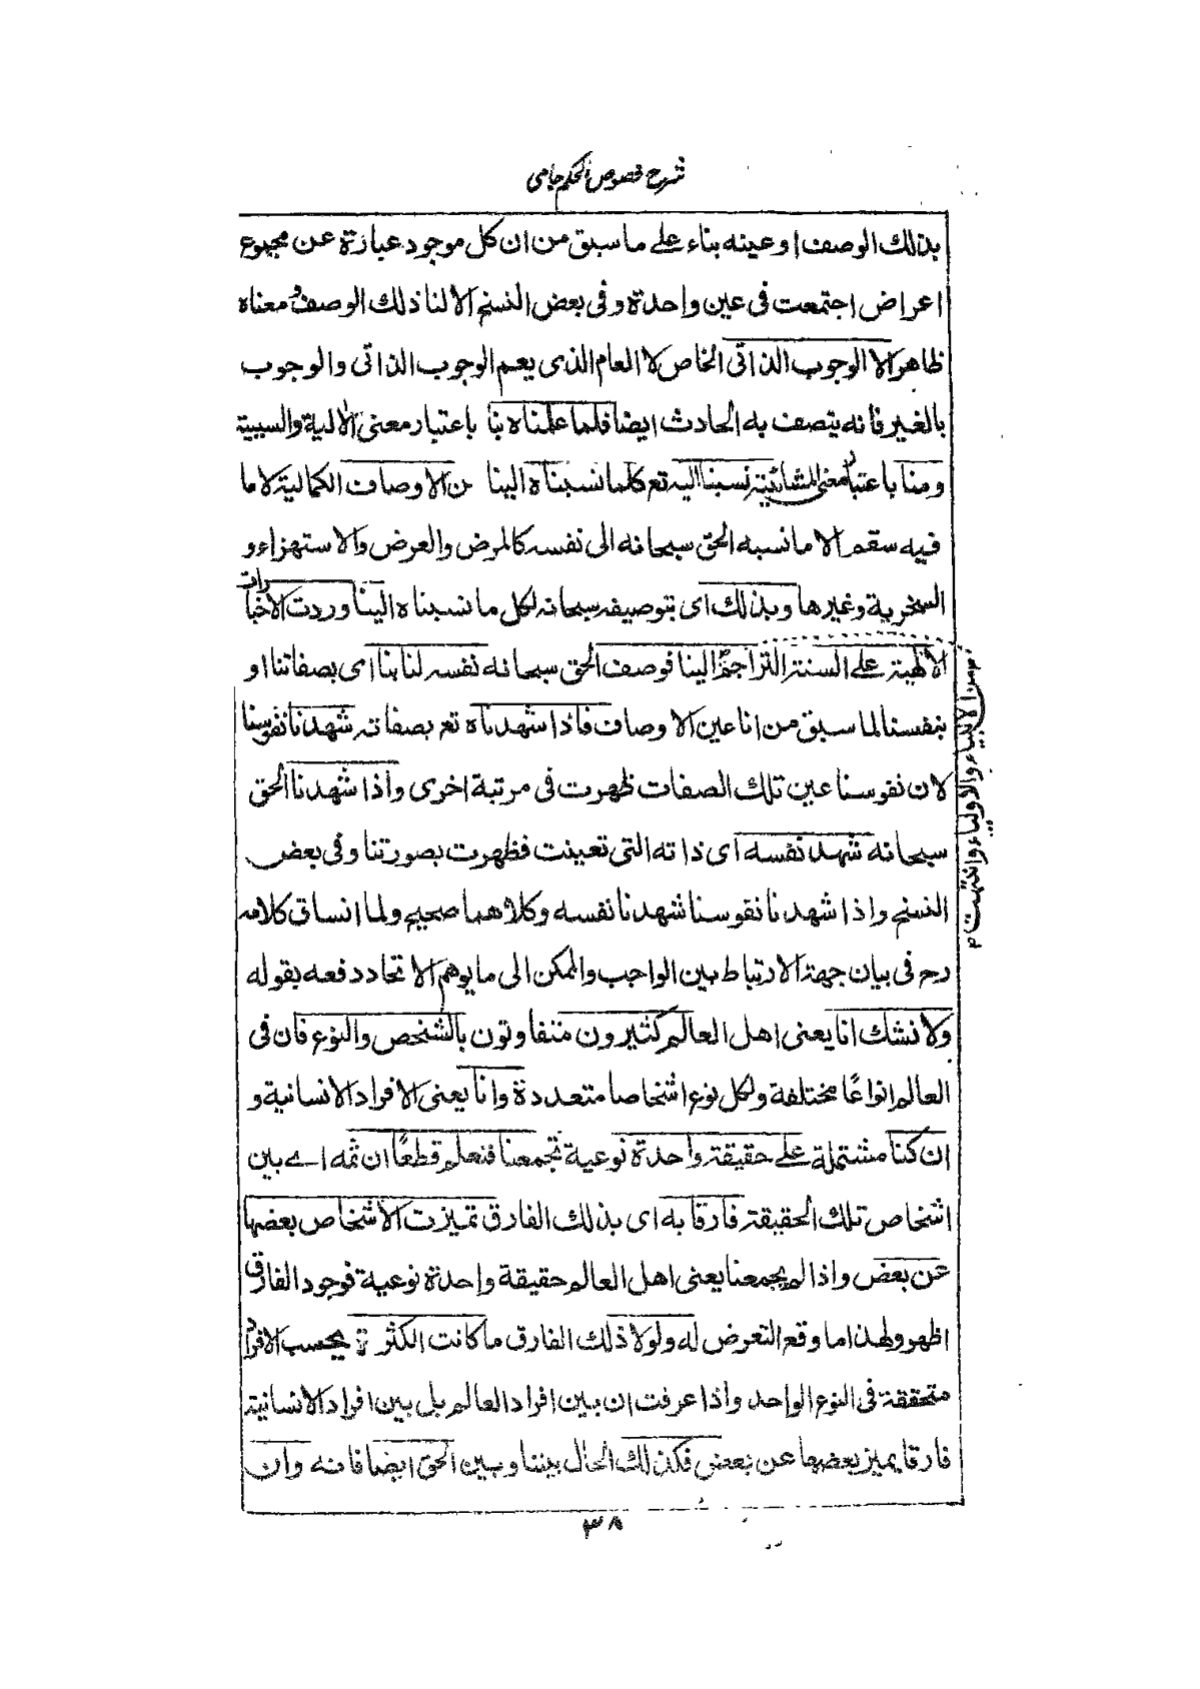 شرح فصوص الحکم جامی
بذلك الوصف او عينه بناء علے ما سبق من ان كل موجود عبارة عن مجموع
اعراض اجتمعت فى عين واحدة وفى بعض النسخ الا لنا ذلك الوصف ومعناه
ظاهر الا الوجوب الذاتى الخاص لا العام الذى يعم الوجوب الذاتى والوجوب
بالغير فانه يتصف به الحادث ايضا فلما علمناه بنا باعتبار معنى الالية والسببية
ومنا باعتبار معنى المنشائية نسبنا اليه تع كلما نسبناه الينا من الاوصاف الكمالية لا ما
فيه سقم الا ما نسبه الحق سبحانه الى نفسه كالمرض والعرض والاستهزاء و
السخرية وغيرها وبذلك اى بتوصيفه سبحانه لكل ما نسبناه الينا وردت الاخبارات
الالهية علے السنة التراجم الينا فوصف الحق سبحانه نفسه لنا بنا اى بصفاتنا او
بنفسنا لما سبق من انا عين الاوصاف فاذا شهدناه تع بصفاته شهدنا نفوسنا
لان نفوسنا عين تلك الصفات ظهرت فى مرتبة اخرى واذا شهدنا الحق
سبحانه شهد نفسه اى ذاته التى تعينت فظهرت بصورتنا وفى بعض
النسخ واذا شهدنا نفوسنا شهدنا نفسه وكلاهما صحيح ولما انساق كلامه
رح فى بيان جهة الارتباط بين الواجب والممكن الى ما يوهم الاتحاد دفعه بقوله
ولا نشك انا يعنى اهل العالم كثيرون متفاوتون بالشخص والنوع فان فى
العالم انواعًا مختلفة ولكل نوع اشخاصا متعددة وانا يعنى الافراد الانسانية و
ان كنا مشتملة علے حقيقة واحدة نوعية تجمعنا فنعلم قطعًا ان ثمه اے بين
اشخاص تلك الحقيقة فارقا به اى بذلك الفارق تميزت الاشخاص بعضها
عن بعض واذا لم يجمعنا يعنى اهل العالم حقيقة واحدة نوعية فوجود الفارق
اظهر ولهذا ما وقع التعرض له ولولا ذلك الفارق ما كانت الكثرة بحسب الافراد
متحققة فى النوع الواحد واذا عرفت ان بين افراد العالم بل بين افراد الانسانية
فارقا يميز بعضها عن بعض فكذلك الحال بيننا وبين الحق ايضا فانه وان
من الانبياء والاولياء
٣٨